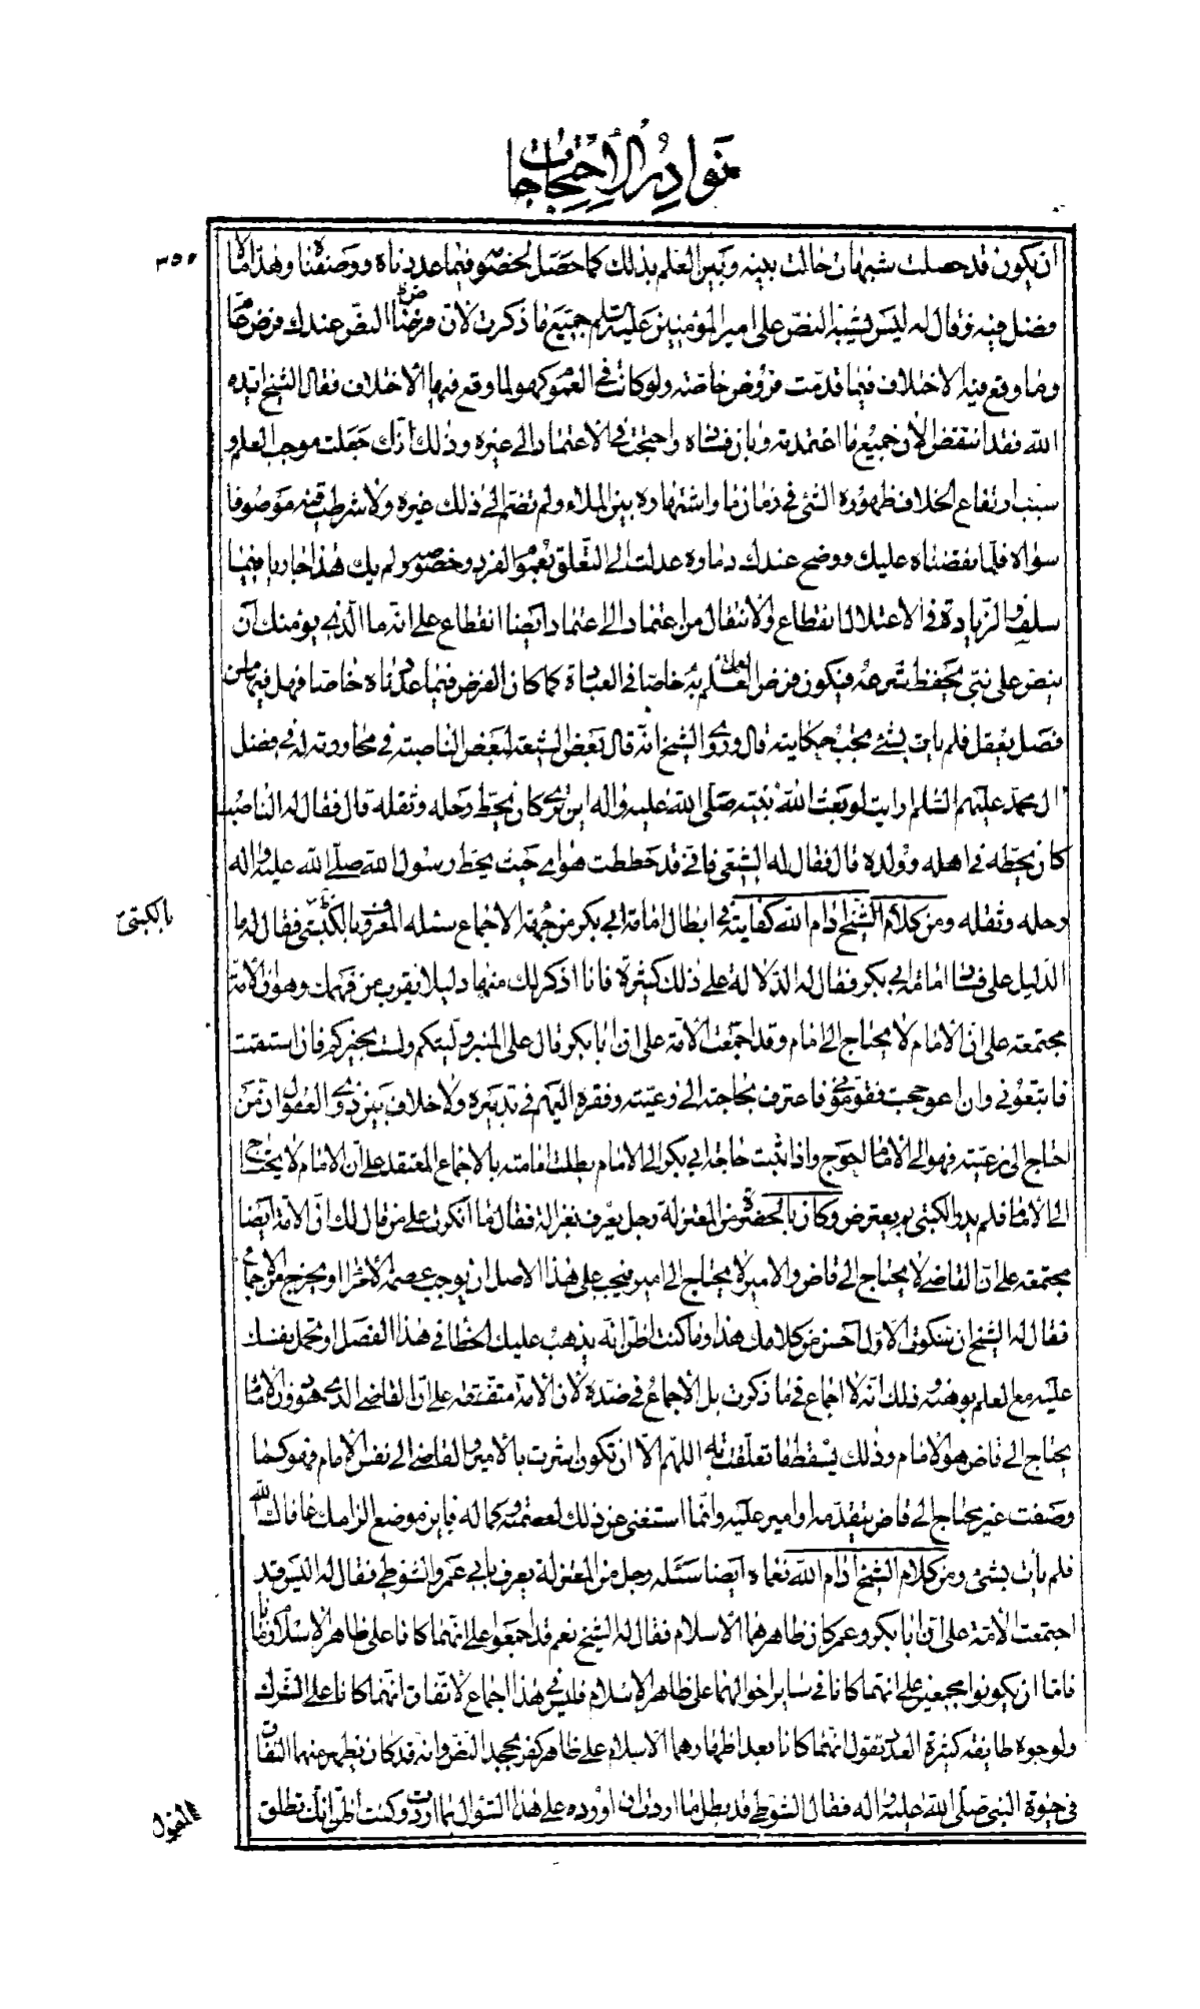 نوادر الاحتجاجات
٣٥٠
ان يكون قد حصلت شبهات حالت بينه و بين العلم بذلك كما حصل لخصومه فيما عددناه و وصفناه و هذا ما لا
فصل فيه فقال له ليس يشبه النص على امير المؤمنين عليه السلم جميع ما ذكرت لان فرض النص عندك فرض عام
و ما وقع فيه الاختلاف فيما قدمت فروض خاصة و لو كانت في العموم كهو لما وقع فيها الاختلاف فقال الشيخ ايده
الله فقد انتقض الان جميع ما اعتمدته و بان فساده و احتجت في الاعتماد الى غيره و ذلك انك جعلت موجب العلم و
سبب ارتفاع الخلاف ظهوره الشئ في زمان ما و اشتهاره بين الملاء و لم تضم الى ذلك غيره و لا شرطت فيه موصوفا
سواه فلما نقضناه عليك و وضح عندك دماره عدلت الى التعلق بعموم الفرض و خصوصه و لم يك هذا جاريا فيما
سلف و الزيادة في الاعتلال انقطاع و الانتقال من اعتماد الى اعتماد ايضا انقطاع على انه ما الذي يؤمنك ان
ينص على نبي يحفظ شرعه فيكون فرض العمل به خاصا في العبادة كما كان الفرض فيما عددناه خاصا فهل فيها من
فصل يعقل فلم يات بشئ يجب حكايته قال و روى الشيخ انه قال بعض الشيعة لبعض الناصبة في محاورته له في فضل
ال محمد عليهم السلم ارايت لو بعث الله نبيه صلى الله عليه و اله اين ترى كان يحط رحله و ثقله قال فقال له الناصب
كان يحطه في اهله و ولده قال فقال له الشيعي فاني قد حططت هواي حيث يحط رسول الله صلى الله عليه و اله
رحله و ثقله و من كلام الشيخ ادام الله كفايته في ابطال امامة ابي بكر من جهة الاجماع سئله المعروف بالكتبي فقال له ما
بالكتبي
الدليل على فساد امامة ابي بكر فقال له الدلالة على ذلك كثيرة فانا اذكر لك منها دليلا يقرب من فهمك و هو ان الامة
مجتمعة على ان الامام لا يحتاج الى امام و قد اجمعت الامة على ان ابا بكر قال على المنبر وليتكم و لست بخيركم فان استقمت
فاتبعوني و ان اعوججت فقوموني فاعترف بحاجته الى رعيته و فقره اليهم في تدبيره و لا خلاف بين ذوي العقول ان من
احتاج الى رعيته فهو الى الامام احوج و اذا ثبت حاجة ابي بكر الى الامام بطلت امامته بالاجماع المنعقد على ان الامام لا يحتاج
الى الامام فلم يدر الكتبي بم يعترض و كان بالحضرة من المعتزلة رجل يعرف بعرزالة فقال ما انكرت على من قال لك ان الامة ايضا
مجتمعة على ان القاضي لا يحتاج الى قاض و الامير لا يحتاج الى امير فيجب على هذا الاصل ان يوجب عصمة الامراء او يخرج من الاجماع
فقال له الشيخ ان سكوت الاول احسن من كلامك هذا و ما كنت اظن انه يذهب عليك الخطا في هذا الفصل او تحمل نفسك
عليه مع العلم بوهنه و ذلك انه لا اجماع في ما ذكرت بل الاجماع في ضده لان الامة متفقة على ان القاضي الذي هو دون الامام
يحتاج الى قاض هو الامام و ذلك يسقط ما تعلقت به اللهم الا ان تكون اشرت بالامير و القاضي الى نفس الامام فهو كما
وصفت غير محتاج الى قاض يتقدمه او امير عليه و انما استغنى عن ذلك لعصمته و كماله فاين موضع الزامك عافاك الله
فلم يات بشئ و من كلام الشيخ ادام الله نعماه ايضا سئله رجل من المعتزلة يعرف بابي عمرو الشوطي فقال له اليس قد
اجتمعت الامة على ان ابا بكر و عمر كان ظاهرهما الاسلام فقال له الشيخ نعم قد اجمعوا على انهما كانا على ظاهر الاسلام زمانا
فاما ان يكونوا مجمعين على انهما كانا في ساير احوالهما على ظاهر الاسلام فليس في هذا اجماع لاتفاق انهما كانا على الشرك
و لوجود طايفة كثيرة العدد تقول انهما كانا بعد اظهارهما الاسلام على ظاهر كفر بجحد النص و انه قد كان يظهر منهما النفاق
في حيوة النبي صلى الله عليه و اله فقال الشوطي قد بطل ما اردت ان اورده على هذا السؤال بما اوردت و كنت اظن انك تطلق
القول